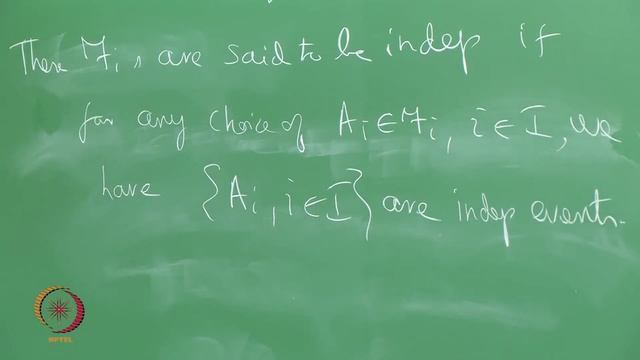 Then ℱi's are said to be indep if
for any choice of Ai ∈ ℱi, i ∈ I, we
have {Ai, i ∈ I} are indep events.
NPTEL